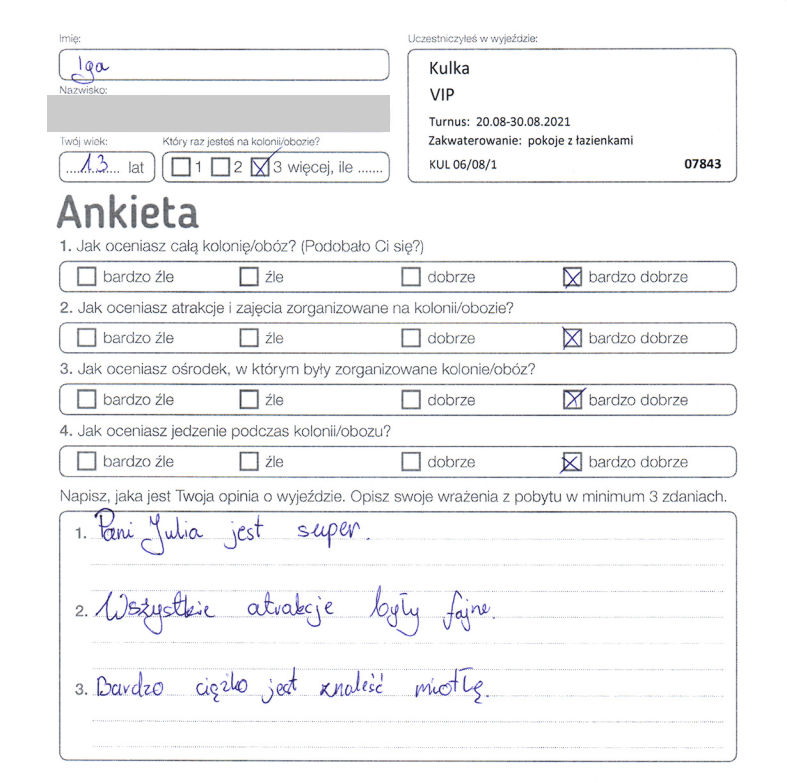 Imię:
Iga
Nazwisko:
Twój wiek:
13 lat
Który raz jesteś na kolonii/obozie?
1 2 3 więcej, ile .......
Uczestniczyłeś w wyjeździe:
Kulka
VIP
Turnus: 20.08-30.08.2021
Zakwaterowanie: pokoje z łazienkami
KUL 06/08/1 07843
Ankieta
1. Jak oceniasz całą kolonię/obóz? (Podobało Ci się?)
bardzo źle źle dobrze bardzo dobrze
2. Jak oceniasz atrakcje i zajęcia zorganizowane na kolonii/obozie?
bardzo źle źle dobrze bardzo dobrze
3. Jak oceniasz ośrodek, w którym były zorganizowane kolonie/obóz?
bardzo źle źle dobrze bardzo dobrze
4. Jak oceniasz jedzenie podczas kolonii/obozu?
bardzo źle źle dobrze bardzo dobrze
Napisz, jaka jest Twoja opinia o wyjeździe. Opisz swoje wrażenia z pobytu w minimum 3 zdaniach.
1. Pani Julia jest super.
2. Wszystkie atrakcje były fajne.
3. Bardzo ciężko jest znaleść miotłę.